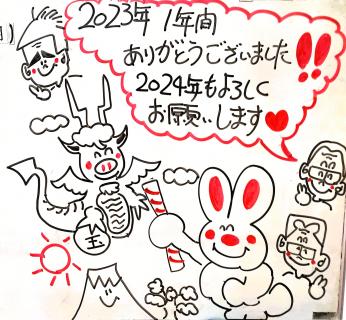 2023年 1年間
ありがとうございました!!
2024年もよろしく
お願いします♥
玉